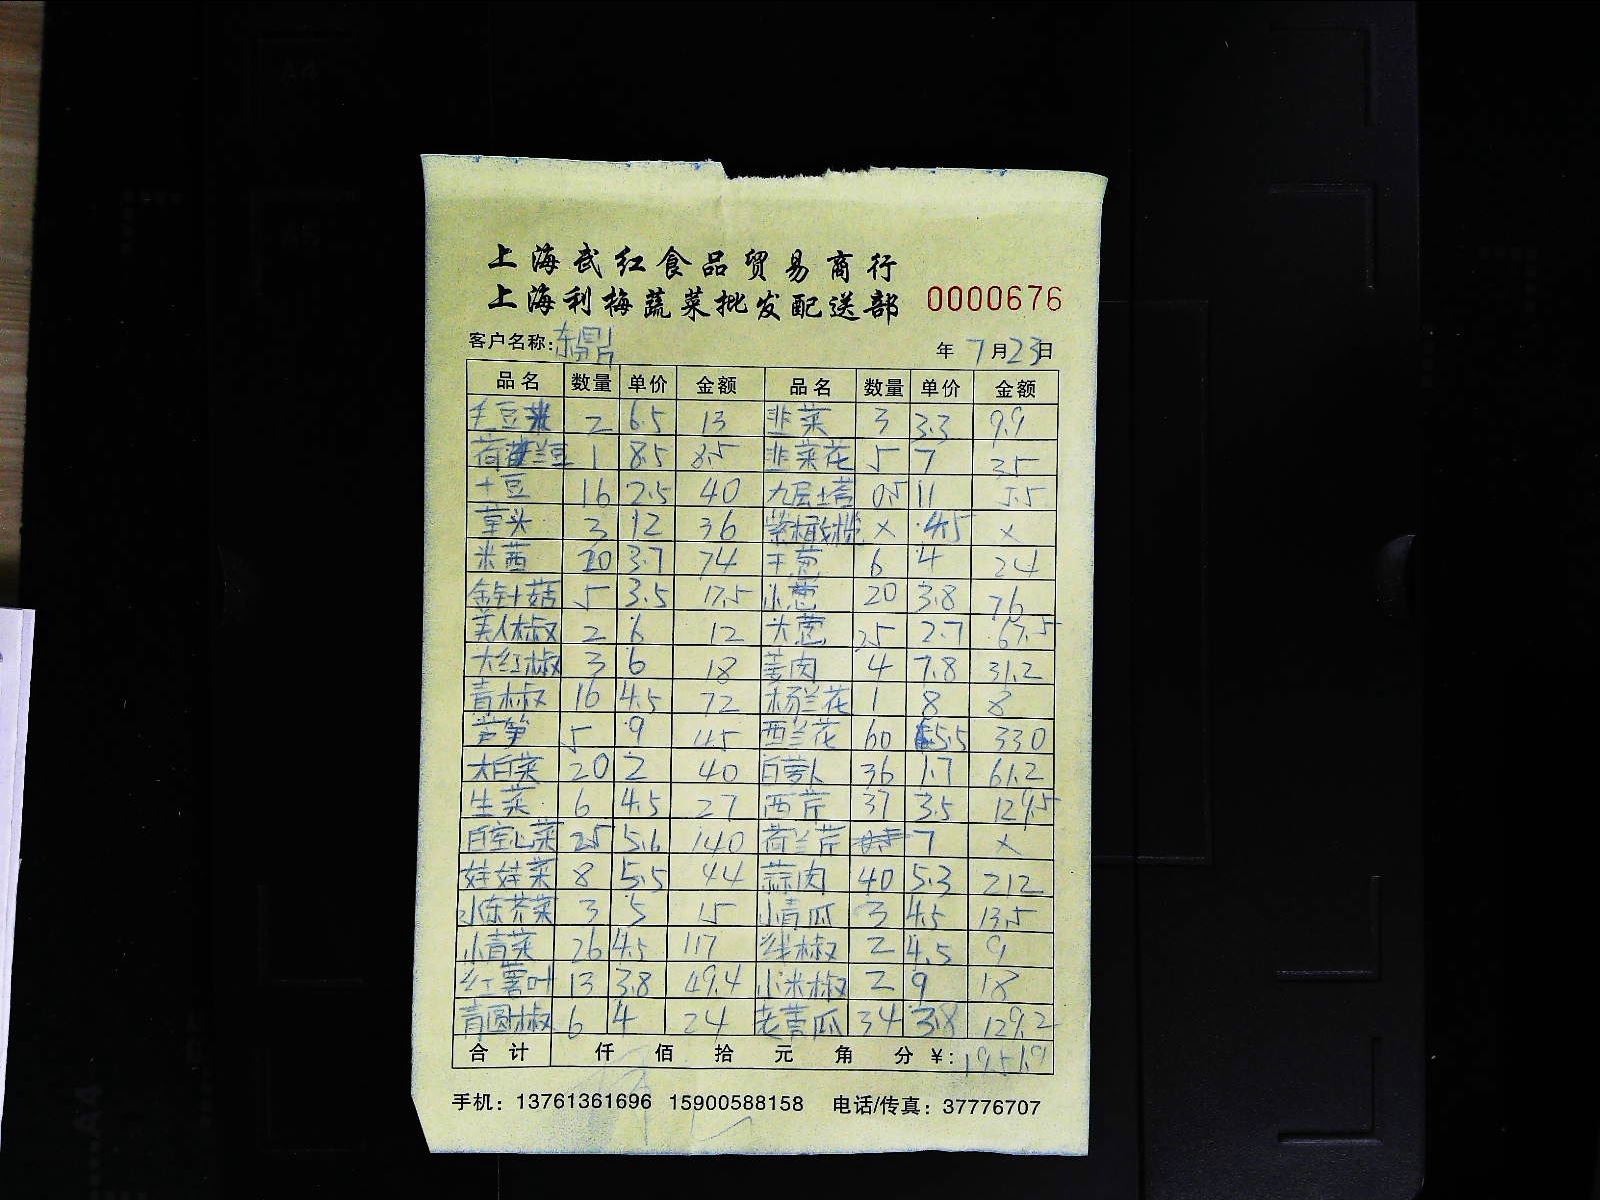 上海武红食品贸易商行
上海利梅蔬菜批发配送部 0000676
客户名称:东鼎 年 7月23日
品名 数量 单价 金额 品名 数量 单价 金额
毛豆米 2 6.5 13 韭菜 3 3.3 9.9
荷兰豆 1 8.5 8.5 韭菜花 5 7 35
土豆 16 2.5 40 九层塔 0.5 11 5.5
草头 3 12 36 紫橄榄 x 4.5 x
米茜 20 3.7 74 干葱 6 4 24
金针菇 5 3.5 17.5 小葱 20 3.8 76
美人椒 2 6 12 大葱 25 2.7 67.5
大红椒 3 6 18 姜肉 4 7.8 31.2
青椒 16 4.5 72 杨兰花 1 8 8
芦笋 5 9 45 西兰花 60 5.5 330
大白菜 20 2 40 白萝卜 36 1.7 61.2
生菜 6 4.5 27 西芹 37 3.5 129.5
白空心菜 25 5.6 140 荷兰芹 7 x
娃娃菜 8 5.5 44 蒜肉 40 5.3 212
小东芥菜 3 5 15 小青瓜 3 4.5 13.5
小青菜 26 4.5 117 线椒 2 4.5 9
红薯叶 13 3.8 49.4 小米椒 2 9 18
青圆椒 6 4 24 老黄瓜 34 3.8 129.2
合计 仟 佰 拾 元 角 分 ¥: 1951.9
手机：13761361696 15900588158 电话/传真：37776707